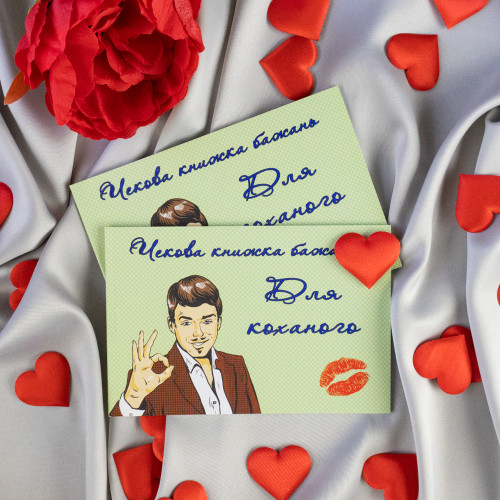 Чекова книжка бажань
Для
коханого
Чекова книжка бажа
Для
коханого